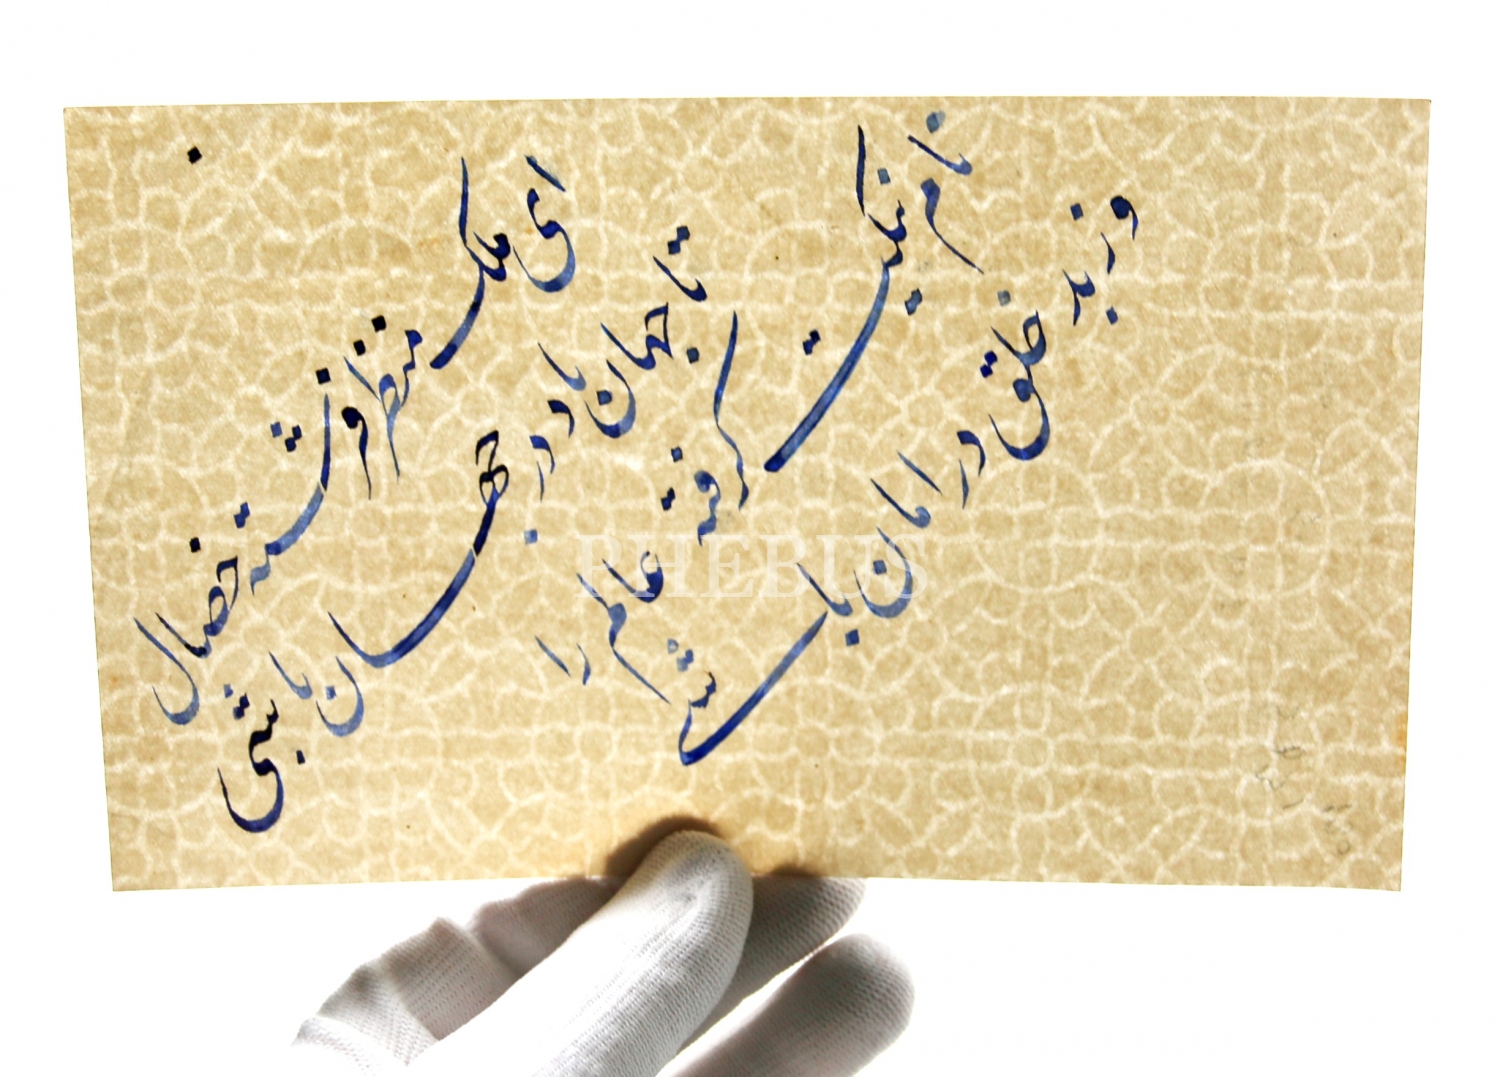 ای ملک منظر فرشته خصال
تا جهان باد در جهان باشی
نام نیکت گرفته عالم را
وز بد خلق در امان باشی
PHEBUS